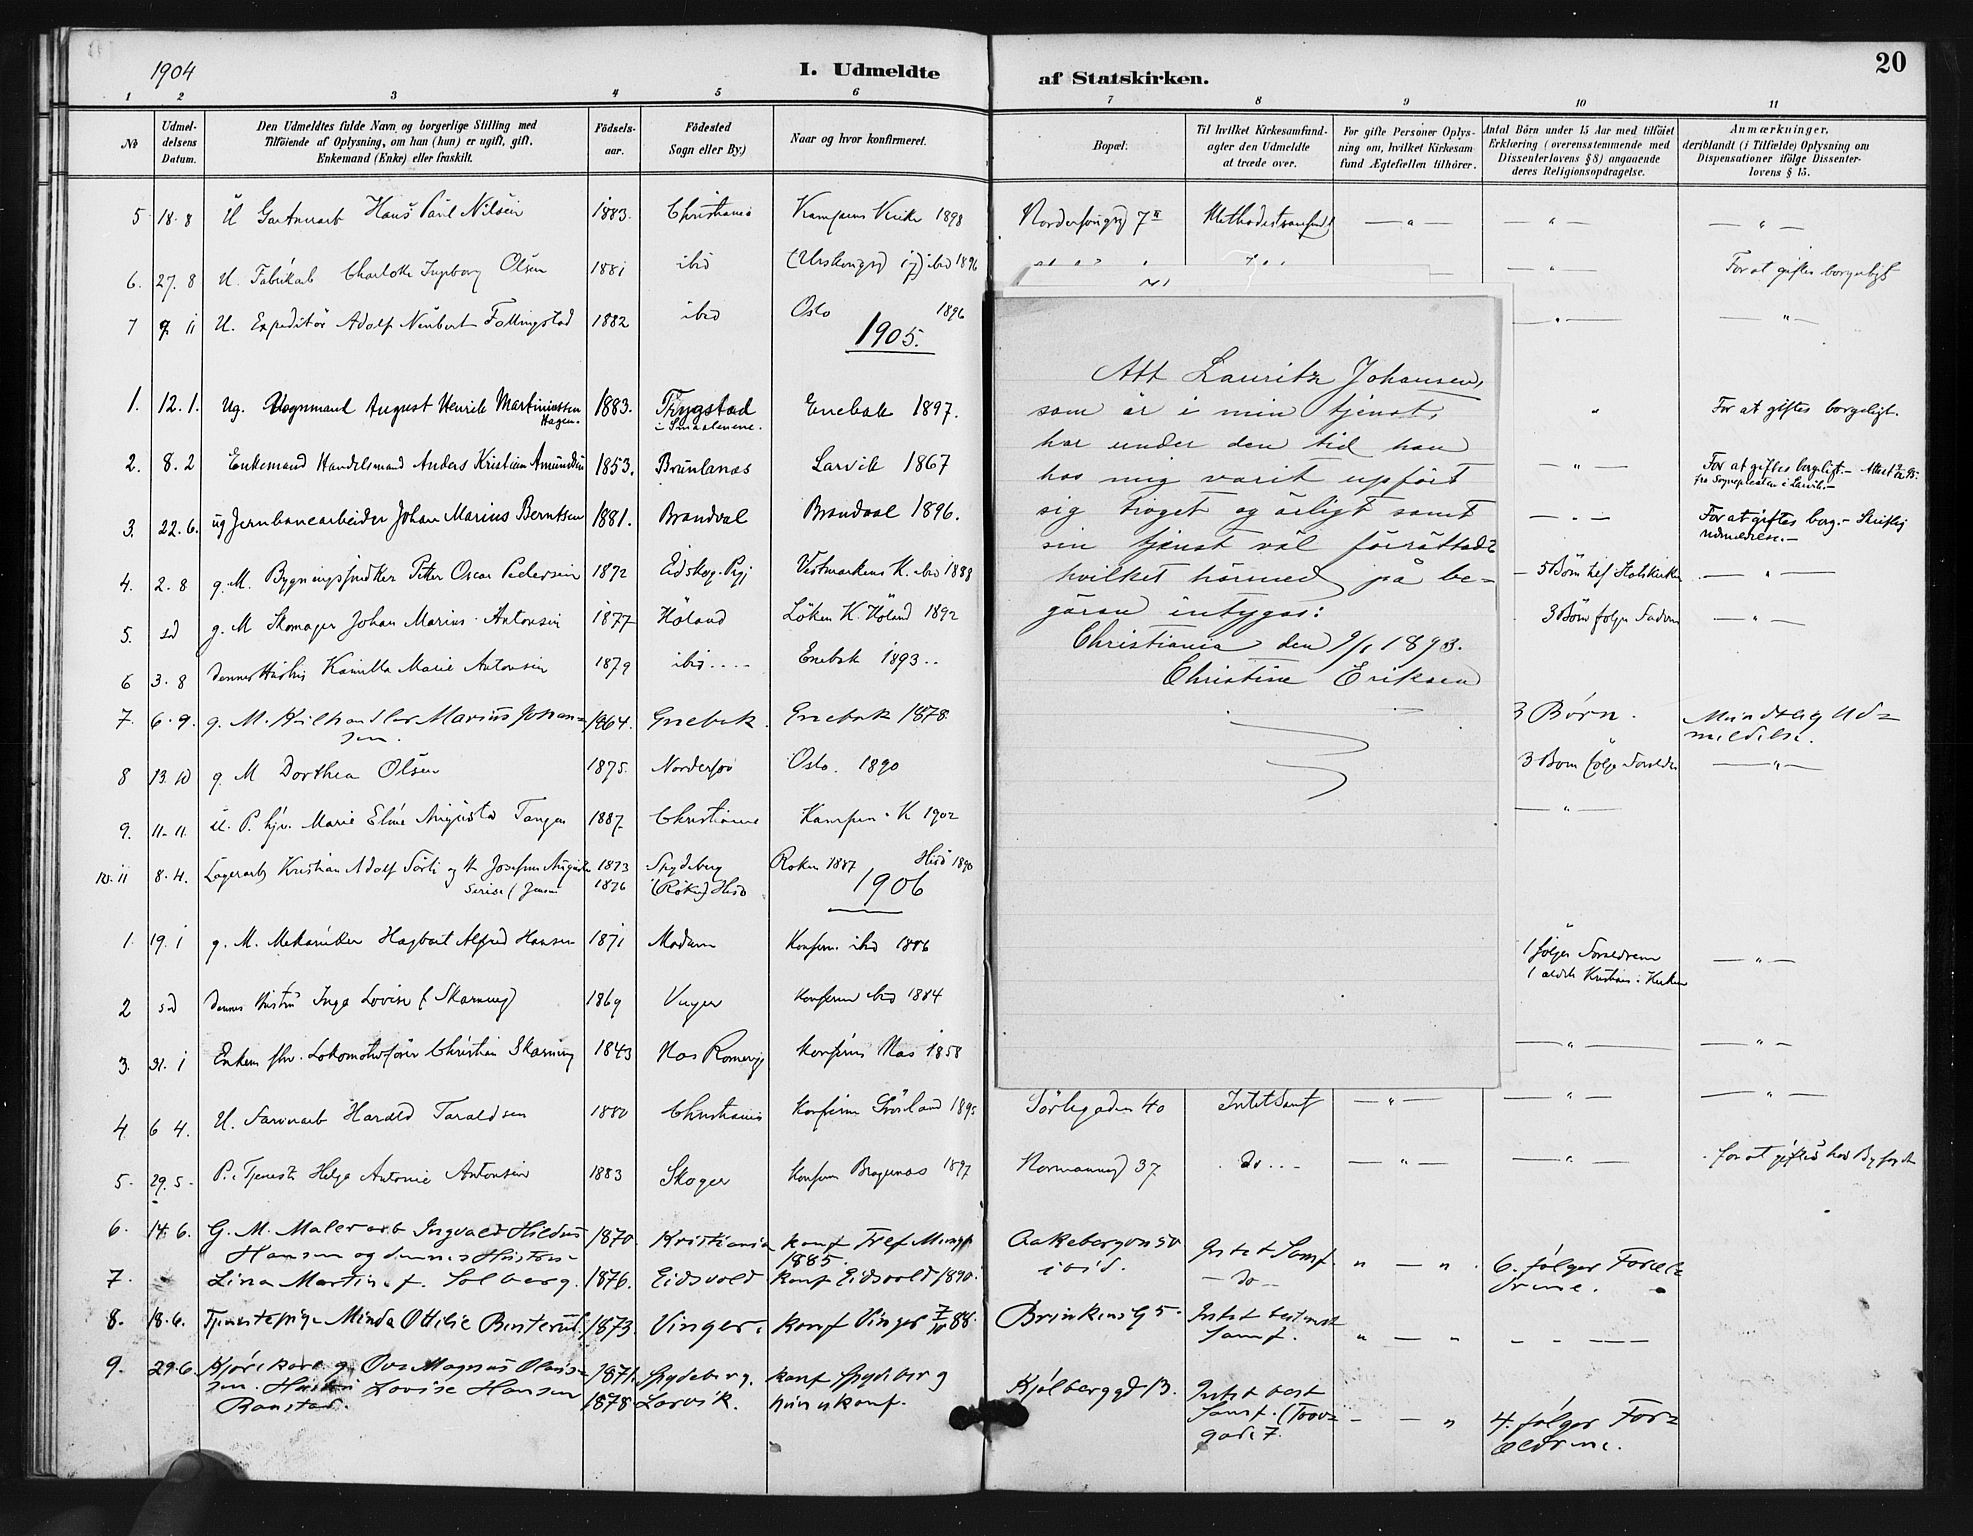 1904
I. Udmeldte
1 2 3 4 5 6
№
Udmel-
delsens
Datum.
Den Udmeldtes fulde Navn og borgerlige Stilling med
Tilföiende af Oplysning, om han (hun) er ugift, gift,
Enkemand (Enke) eller fraskilt.
Födsels-
aar.
Födested
Sogn eller By.)
Naar og hvor konfirmeret.
5 18.8 U Hans Paul Nilsen 1883. Christiania Kampens Kirke 1898
6. 27.8 U. Fabrikarb Charlotte Ingeborg Olsen 1881 ibid ibid 1896
7 9. 11 U. Expeditör Adolf Follingstad 1882 ibid Oslo 1896
1905.
1. 12.1. Ug. Vognmand August Henrik Martiniussen 1883. Trygstad Enebak 1897.
Hagen. i Smaalenene.
2. 8.2 Enkemand Handelsmand Anders Kristian Amundsen 1853. Brunlanæs Larvik 1867
3. 22.6. ug Jernbanearbeider Johan Marius Berntsen 1881. Brandval Brandval 1896.
4. 2.8 g. M. Bygningssnedker Petter Oscar Pedersen 1872 Eidskog. Vestmarkens K. ibid 1888
5. sd g. M Skomager Johan Marius Antonsen 1877 Höland Löken K Höland 1892
6 3.8 dennes Hustru Kamilla Marie Antonsen 1879 ibid.... Enebak 1893..
7. 6.9. g. M. Marius Johan= 1864. Enebak. Enebak 1878.
sen.
8 13.10 g. M Dorthea Olsen 1875. Oslo. 1890
9. 11.11 U. P. Marie Augusta Tangen 1887. Christiania Kampen. K 1902
10.11 8.4. Lagerarb Kristian Adolf og 1873 Spydeberg Röken 1887 1890
1876
1906
1. 19.1 g. M. Mekaniker Alfred Hansen 1871 Modum Konfirm. ibid 1886
2 sd dennes Hustru Inga Lovise (f Skarning) 1869 Vinger Konfirm ibid 1884
3. 31.1 Enkem. Lokomotivförer Christian Skarning 1843 Næs Romerig Konfirm Næs 1858
4 6 4. U. Harald Taraldsen 1880 Christiania Konfirm Grönland 1895
5. 29.5. P. Tjenest Helga Antonie Antonsen 1883 Skoger Konfirm Bragernæs 1897
6. 14.6. G. M. Malerarb Ingvald Hildus 1870. Kristiania konf Tref. Menigh
Hansen og dennes Hustru 1885.
7. Lina Martine f. Solberg. 1876. Eidsvold konf Eidsvold 1890.
8. 18.6. Tjenestepige Minda Ottilie Bensterud 1873. Vinger. konf Vinger 7/10 88.
9. 29.6. Kjörekarl g. Ove Magnus Olaus= 1871. Spydeberg. konf Spydeberg
sen. Hustru Lovise Hansen 1878 Larvik.
Ranstad.
af Statskirken.
20
7 8 9 10 11
Bopæl.
Til hvilket Kirkesamfund-
agter den Udmeldte
at træde over.
For gifte Personer Oplys-
ning om, hvilket Kirkesam-
fund Ægtefællen tilhörer.
Antal Börn under 15 Aar med tilföiet
Erklæring (overensstemmende med
Dissenterlovens § 8) angaaende
deres Religionsopdragelse.
Anmærkninger,
deriblandt (i Tilfælde) Oplysning om
Dispensationer ifölge Dissenter-
lovens § 15.
7 II Methodistsamfund
For at giftes borgerligt
Att Lauritz Johansen,
som är i min tjenst,
har under den tid han
hos mig varit upfört
sig troget og ärligt samt
sin tjenst väl förrättade
hvilket härmed på be-
gäran intygas:
Christiania den 9/1 1893.
Christine Eriksen
For at giftes borgerligt.
For at giftes borgerligt. -
For at giftes borg. - Skriftlig
udmeldelse. -
5 Börn Statskirken
3 Börn følger Faderen
3 Børn. Mundtlig Ud=
meldelse.
3 Börn følge Foreldre
1 følger Forældrene
1 Kristian i Kirken
Sörligaden 40 Intet Samf
Normannsgd 37 do... for at giftes hos Byfogden
Aakebergvn 50 Intet Samf.
ibid. - do - 6. følger Foræl=
drene.
Brinkens G 5. Intet bestemt
Samf.
Kjölberggd 13. Intet best
Samf.
gade 7. 4. følger For=
ældrene.